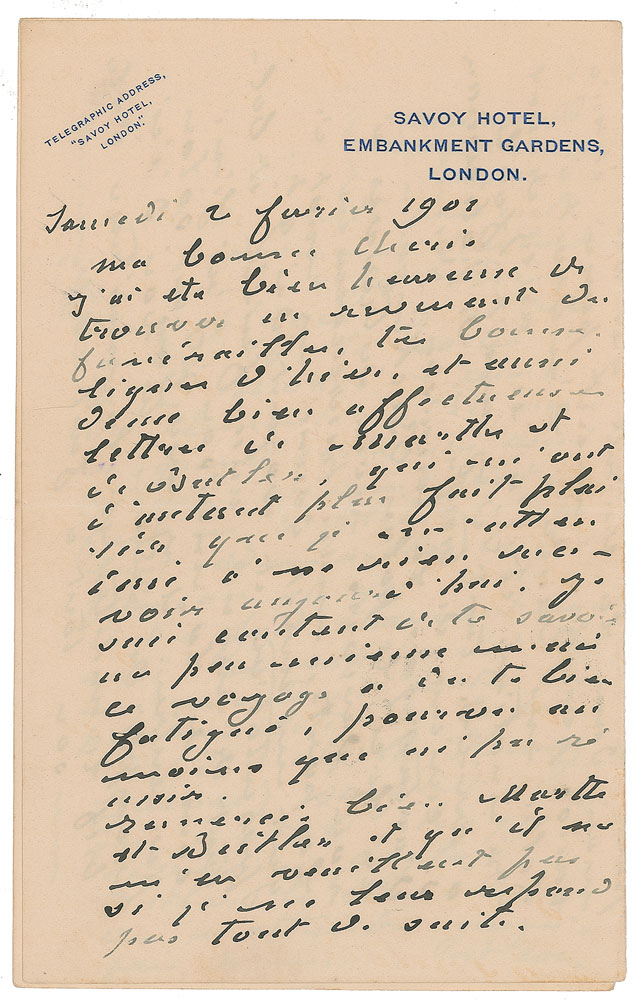 TELEGRAPHIC ADDRESS,
"SAVOY HOTEL,
LONDON."
SAVOY HOTEL,
EMBANKMENT GARDENS,
LONDON.
Samedi 2 fevrier 1901
ma bonne cherie
J'ai été bien heureuse de
trouver en revenant des
funérailles, tes bonnes
lignes d'hier, et aussi
deux bien affectueuses
lettres de Marthe et
de Butler, qui m'ont
d'autant plus fait plai
sir que je m'atten
dais à ne rien rece-
voir aujourd'hui. Je
suis content de te savoir
un peu mieux mais
ce voyage a du te bien
fatigué, pourvu au
moins que ai pu ré
ussir.
remercie bien Marthe
et Butler et qu'il ne
m'en veuillent pas
si je ne leur repond
pas tout de suite.